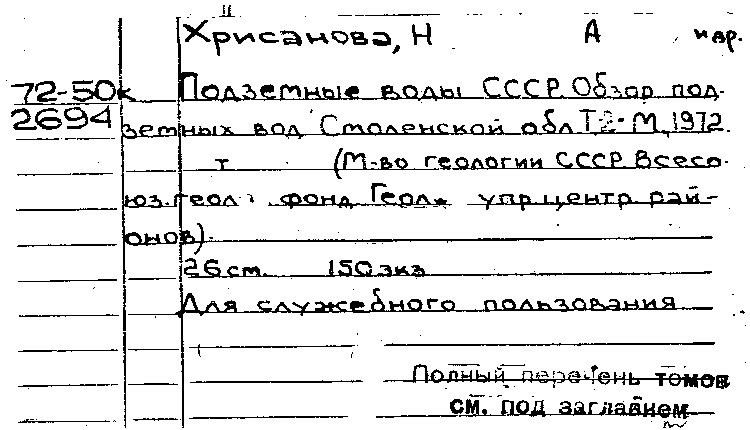 Хрисанова, Н А и др.
72-50к Подземные воды СССР. Обзор под-
2694 земных вод Смоленской обл Т.2-М, 1972.
т (М-во геологии СССР. Всесо-
юз. геол. фонд Геол. упр. центр рай-
онов).
26 см. 150 экз
Для служебного пользования
Полный перечень томов
см. под заглавием